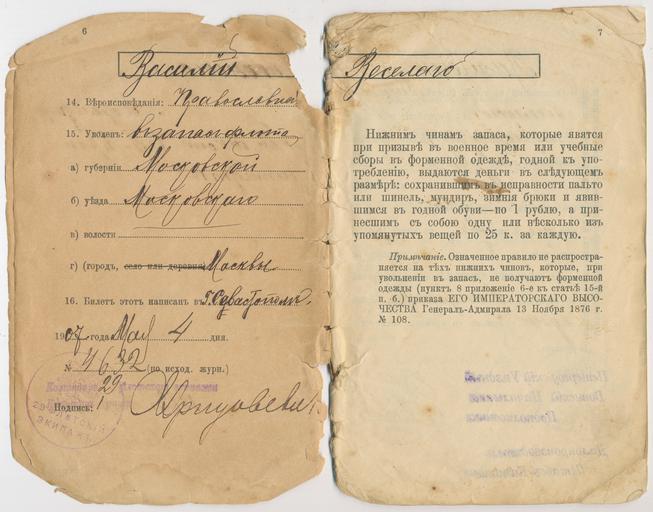 6
Василій
14. Вѣроисповѣданія: Православна
15. Уволенъ: въ запасъ флота
а) губерніи Московской
б) уѣзда Московскаго
в) волости
г) (городъ, село или деревня) Москвы
16. Билетъ этотъ написанъ въ г. Севастополѣ
1907 года Мая 4 дня.
№ 4632 (по исход. журн.)
29
Подпись:
ЭКИПАЖ
7
Веселаго
Нижнимъ чинамъ запаса, которые явятся
при призывѣ въ военное время или учебные
сборы въ форменной одеждѣ, годной къ упо-
требленію, выдаются деньги въ слѣдующемъ
размѣрѣ: сохранившимъ въ исправности пальто
или шинель, мундиръ, зимнія брюки и явив-
шимся въ годной обуви—по 1 рублю, а при-
несшимъ съ собою одну или нѣсколько изъ
упомянутыхъ вещей по 25 к. за каждую.
Примѣчаніе. Означенное правило не распростра-
няется на тѣхъ нижнихъ чиновъ, которые, при
увольненіи въ запасъ, не получаютъ форменной
одежды (пунктъ 8 приложеніе 6-е къ статьѣ 15-й
п. б.) приказа ЕГО ИМПЕРАТОРСКАГО ВЫСО-
ЧЕСТВА Генералъ-Адмирала 13 Ноября 1876 г.
№ 108.